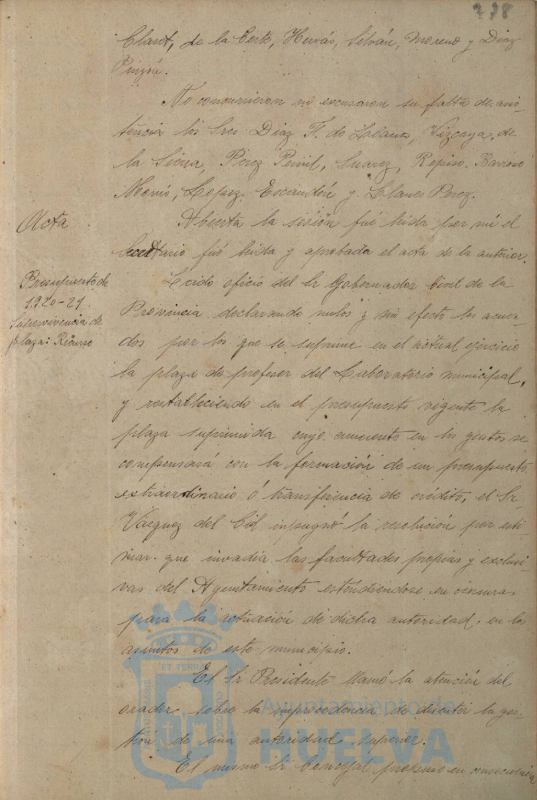 238
Clauet, de la Corte, Hervás, Selván, Moreno y Diaz
Pinzón.
No concurrieron ni excusaron su falta de asis-
tencia los Sres Diaz F. de Labaus, Vizcaya, de
la Sierra, Pérez Penil, Suarez, Repiso, Barroso
Morois, López Escandón y Llanes Perez.
Acta
Abierta la sesión fué leida por mi el
Secretario fué leida y aprobada el acta de la anterior.
Presupuesto de
1920-21.
Supervivencia de
plaza: Recurso
Leido oficio del Sr Gobernador Civil de la
Provincia declarando nulos y sin efecto los acuer-
dos por los que se suprime en el actual ejercicio
la plaza de profesor del Laboratorio municipal,
y restableciendo en el presupuesto vigente la
plaza suprimida cuyo aumento en los gastos se
compensará con la formación de un presupuesto
extraordinario ó transferencia de crédito, el Sr
Vázquez del Cid impugnó la resolución por esti-
mar que invadia las facultades propias y exclusi-
vas del Ayuntamiento extendiendose en censuras
para la actuación de dicha autoridad en los
asuntos de este municipio.
El Sr Presidente llamó la atención del
orador sobre la improcedencia de discutir la ges-
tión de una autoridad superior.
El mismo Sr Concejal propuso en consecuencia
Ayuntamiento de
HUELVA